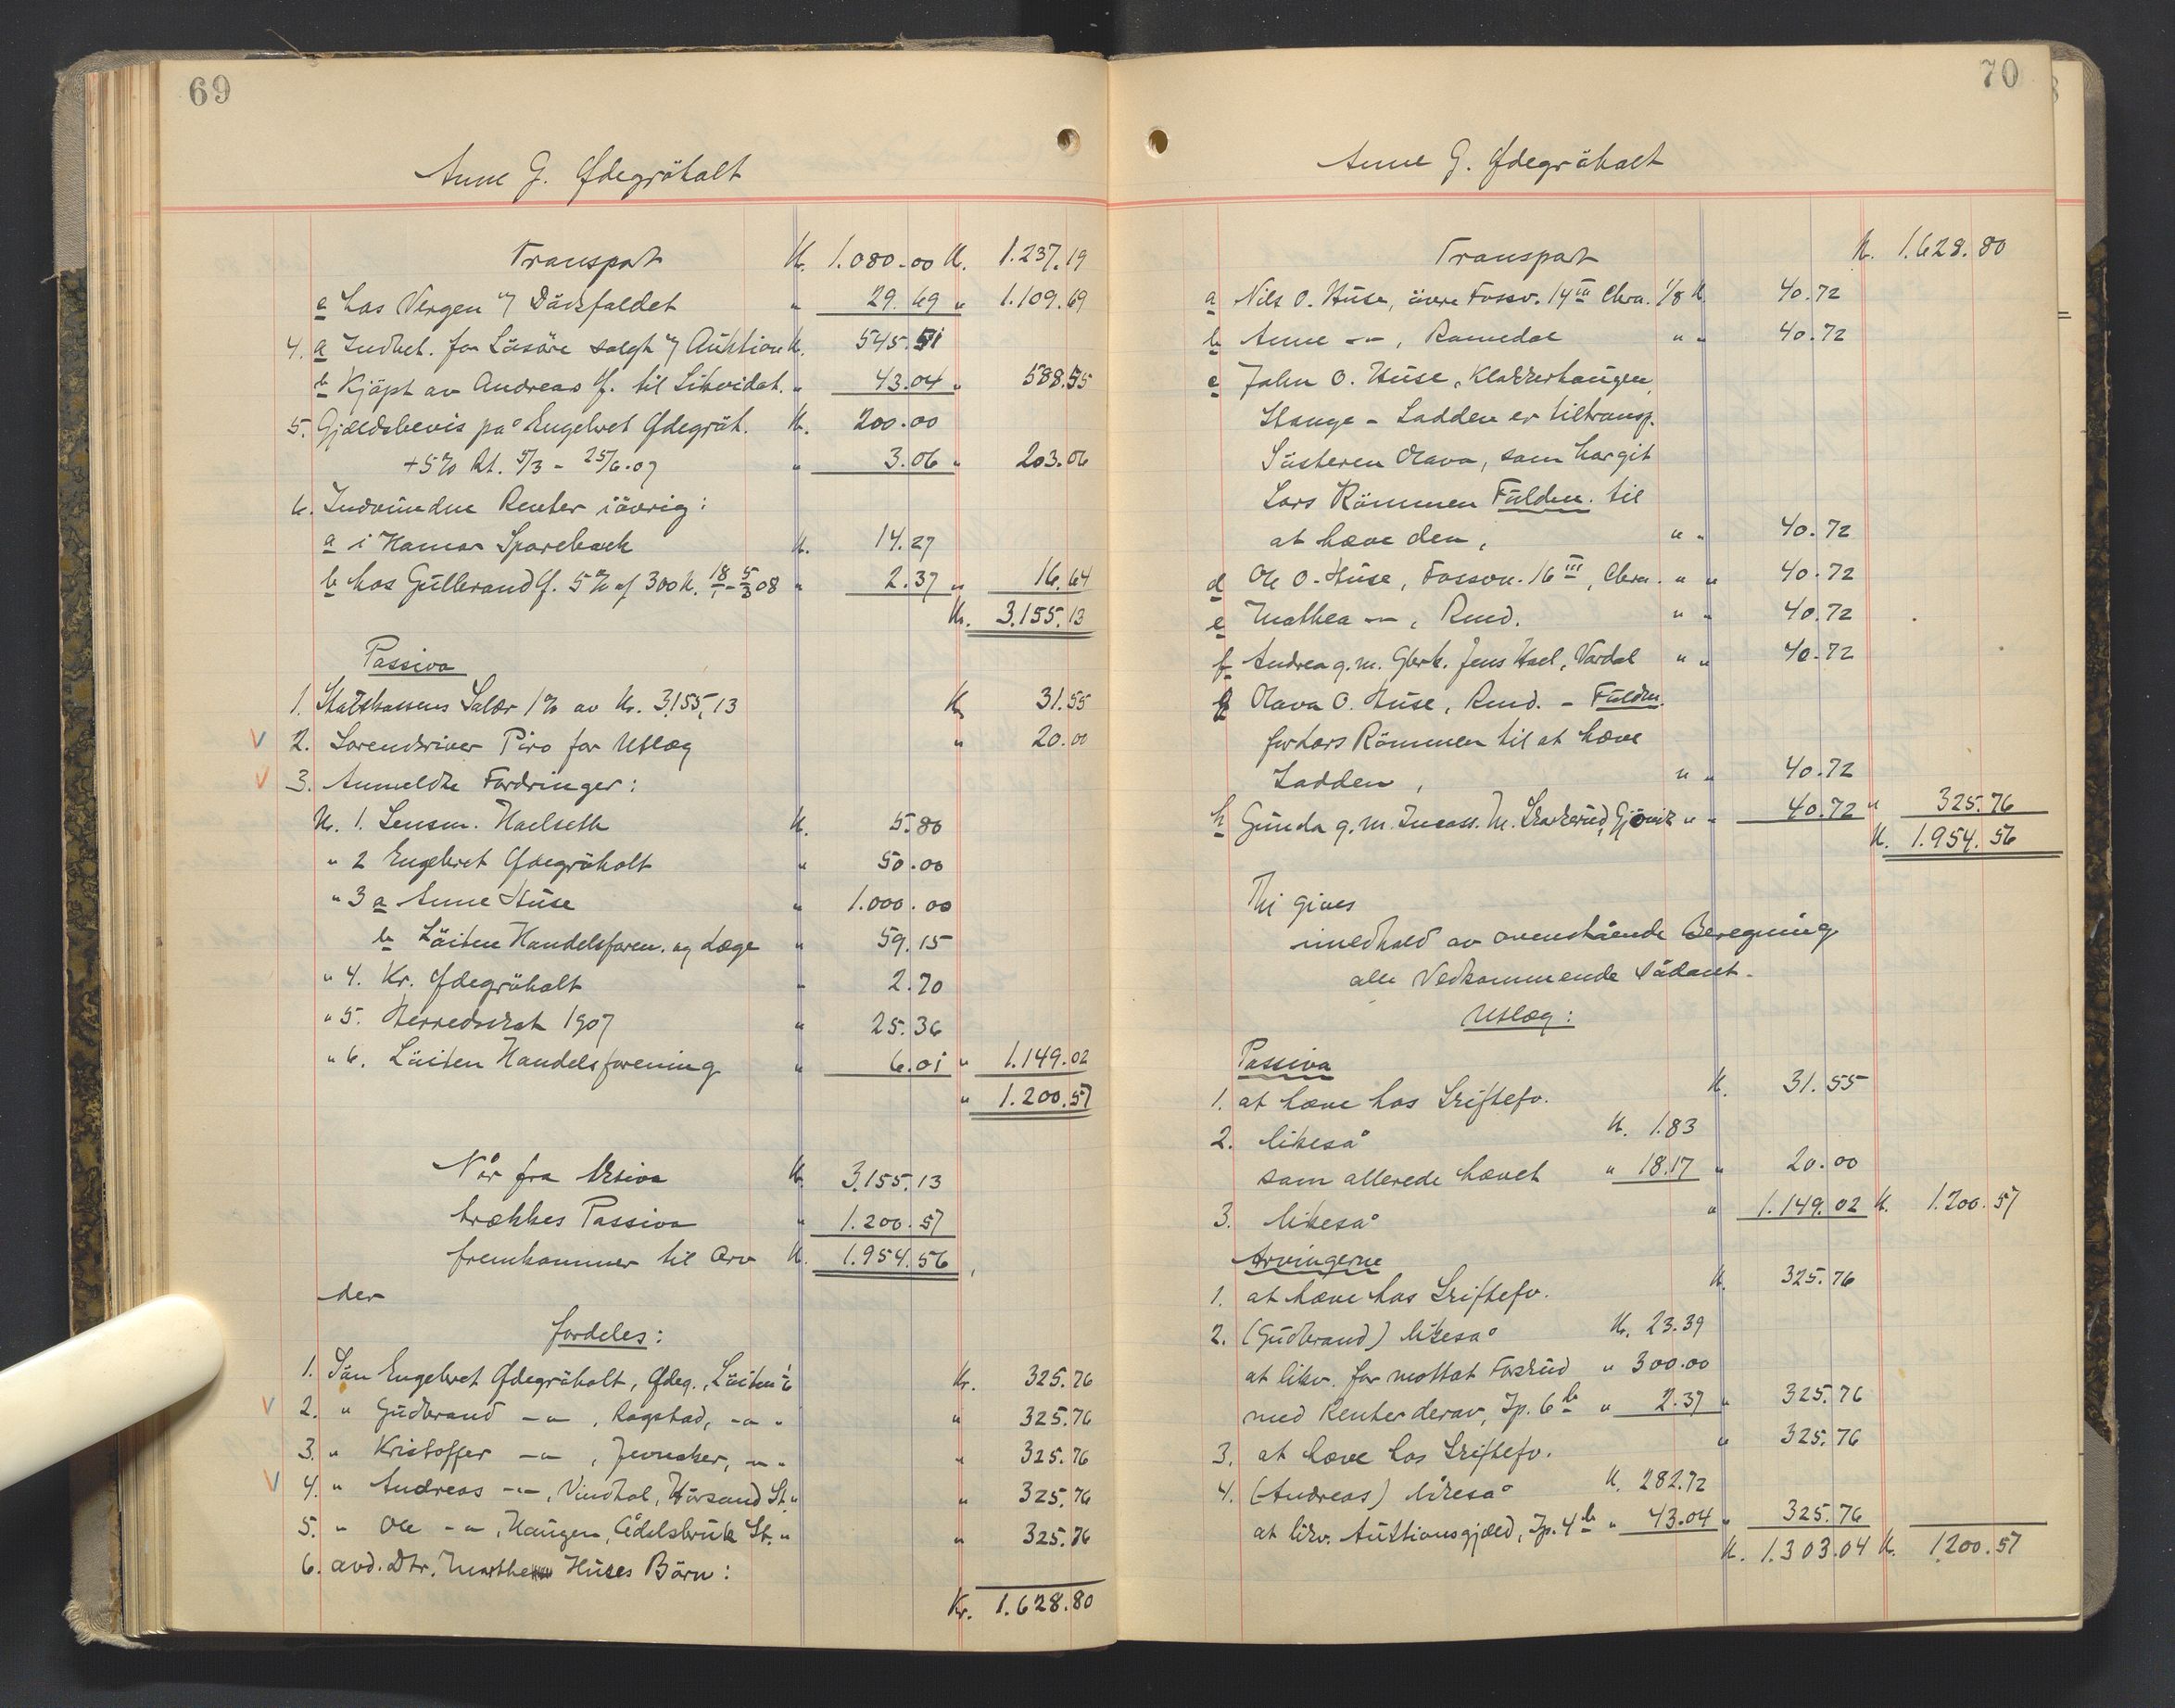 69
Anne G. Ødegråhalt
Transport Kr. 1.080.00 Kr. 1.237.19
c hos Vergen 29.69 " 1.109.69
4. a Indbet. for Lüsöre solgt Auktion Kr. 545.51
b Kjöpt av Andreas Ø. til Likvidat. " 43.04 " 588.55
5. Gjældsbevis på Engebret Ødegråh. Kr. 200.00
+ 5% Rt. 5/3 - 25/6.07 " 3.06 " 203.06
6. Indvundne Renter iövrig:
a i Hamar Sparebank Kr. 14.27
b hos Gulbrand Ø. 5% af 300 K. 18/1 - 5/3 08 " 2.37 " 16.64
Kr. 3.155.13
Passiva
1. Statskassens Salær 1% av Kr. 3155,13 Kr. 31.55
2. Sorenskriver Piro for Utlæg " 20.00
3. Anmeldte Fordringer:
N. 1. Lensm. Haelseth K. 5.80
" 2 Engebret Ødegråholt " 50.00
" 3 a Anne Huse " 1.000.00
b Löiten Handelsforen. og Læge " 59.15
" 4. Kr. Ødegråholt " 2.70
" 5. Herredsskat 1907 " 25.36
" 6. Löiten Handelsforening " 6.01 " 1.149.02
" 1.200.57
Når fra Aktiva K. 3.155.13
trækkes Passiva " 1.200.57
fremkommer til Arv K. 1.954.56,
der
fordeles:
1. Sön Engebret Ødegråholt, Ødeg., Löiten 1/6 Kr. 325.76
2. " Gudbrand -"-, Ragstad, -"- " 325.76
3. " Kristoffer -"-, -"- " 325.76
4. " Andreas -"-, Vindhol, St. " " 325.76
5. " Ole -"-, Haugen, Ådelsbruk St. " " 325.76
6. avd. Dtr. Marthe Huses Börn:
Kr. 1.628.80
70
Anne G. Ødegråhalt
Transport K. 1.628.80
a Nils O. Huse, övre Fossv. 14 III Chra. 1/8 K. 40.72
b Anne -"-, Romedal " " 40.72
c John O. Huse, Klokkerhaugen,
Stange - Lodden er tiltransp.
Süsteren Olava, som har git
Lars Römmen Fuldm. til
at hæve den, " " 40.72
d Ole O. Huse, Fossv. 16 III, Chra. " " 40.72
e Mathea -"-, Rmd. " " 40.72
f Andrea g.m. Gbrk. Jens Hoel, Vardal " " 40.72
g Olava O. Huse, Rmd. - Fuldm.
for Lars Römmen til at hæve
Lodden, " " 40.72
h Gunda g.m. Incass. M. Skakerud, Gjövik " " 40.72 " 325.76
K. 1.954.56
Thi gives
imedhold av ovenstående Beregning
alle Vedkommende sådant
Utlæg:
Passiva
1. at hæve hos Skiftefv. K. 31.55
2. likeså K. 1.83
som allerede hævet " 18.17 " 20.00
3. likeså " 1.149.02 K. 1.200.57
Arvingerne
1. at hæve hos Skiftefv. K. 325.76
2. (Gudbrand) likeså K. 23.39
at likv. for mottat Forskud " 300.00
med Renter derav, Jp. 6 b " 2.37 " 325.76
3. at hæve hos Skiftefv. " 325.76
4. (Andreas) likeså K. 282.72
at likv. Auktionsgjæld, Jp. 4 b " 43.04 " 325.76
K. 1.303.04 K. 1200.57